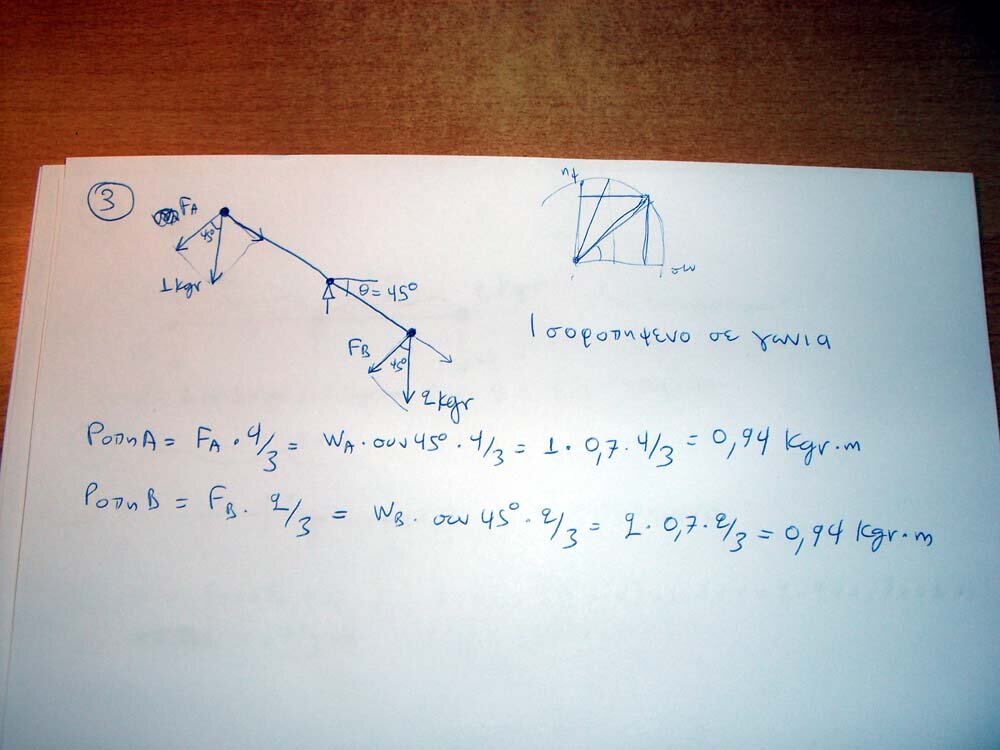 3
FA
45°
1 kgr
θ = 45°
FB
45°
2 kgr
ημ
συν
Ισοροπημενο σε γωνια
Ροπη Α = FA · 4/3 = WA · συν 45° · 4/3 = 1 · 0,7 · 4/3 = 0,94 Kgr·m
Ροπη Β = FB · 2/3 = WB · συν 45° · 2/3 = 2 · 0,7 · 2/3 = 0,94 Kgr·m